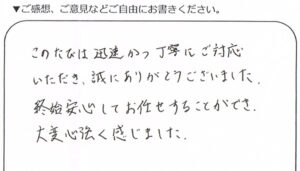 ▼ご感想、ご意見などご自由にお書きください。
このたびは迅速かつ丁寧にご対応
いただき、誠にありがとうございました。
終始安心してお任せすることができ、
大変心強く感じました。